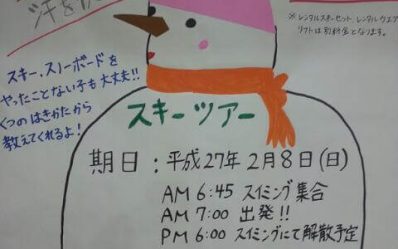 汗をか
※レンタルスキーセット レンタルウエア
リフトは別料金となります。
スキー、スノーボードを
やったことない子も大丈夫!!
くつのはきかたから
教えてくれるよ!
スキーツアー
期日:平成27年2月8日(日)
AM 6:45 スイミング集合
AM 7:00 出発!!
PM 6:00 スイミングにて解散予定